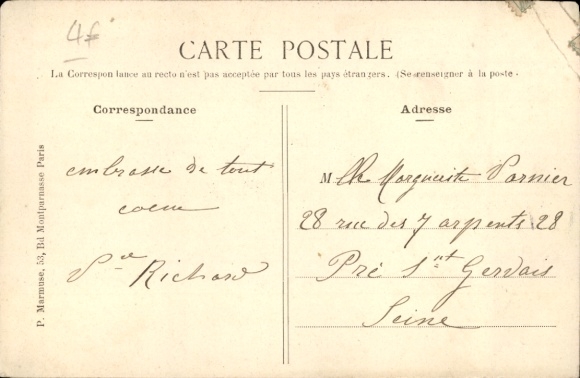 4f
CARTE POSTALE
La Correspondance au recto n'est pas acceptée par tous les pays étrangers. (Se renseigner à la poste.
Correspondance
embrasse de tout
coeur
Richard
P. Marmuse, 53, Bd Montparnasse Paris
Adresse
M lle Marguerite Varnier
28 rue des 7 arpents 28
Pré St Gervais
Seine